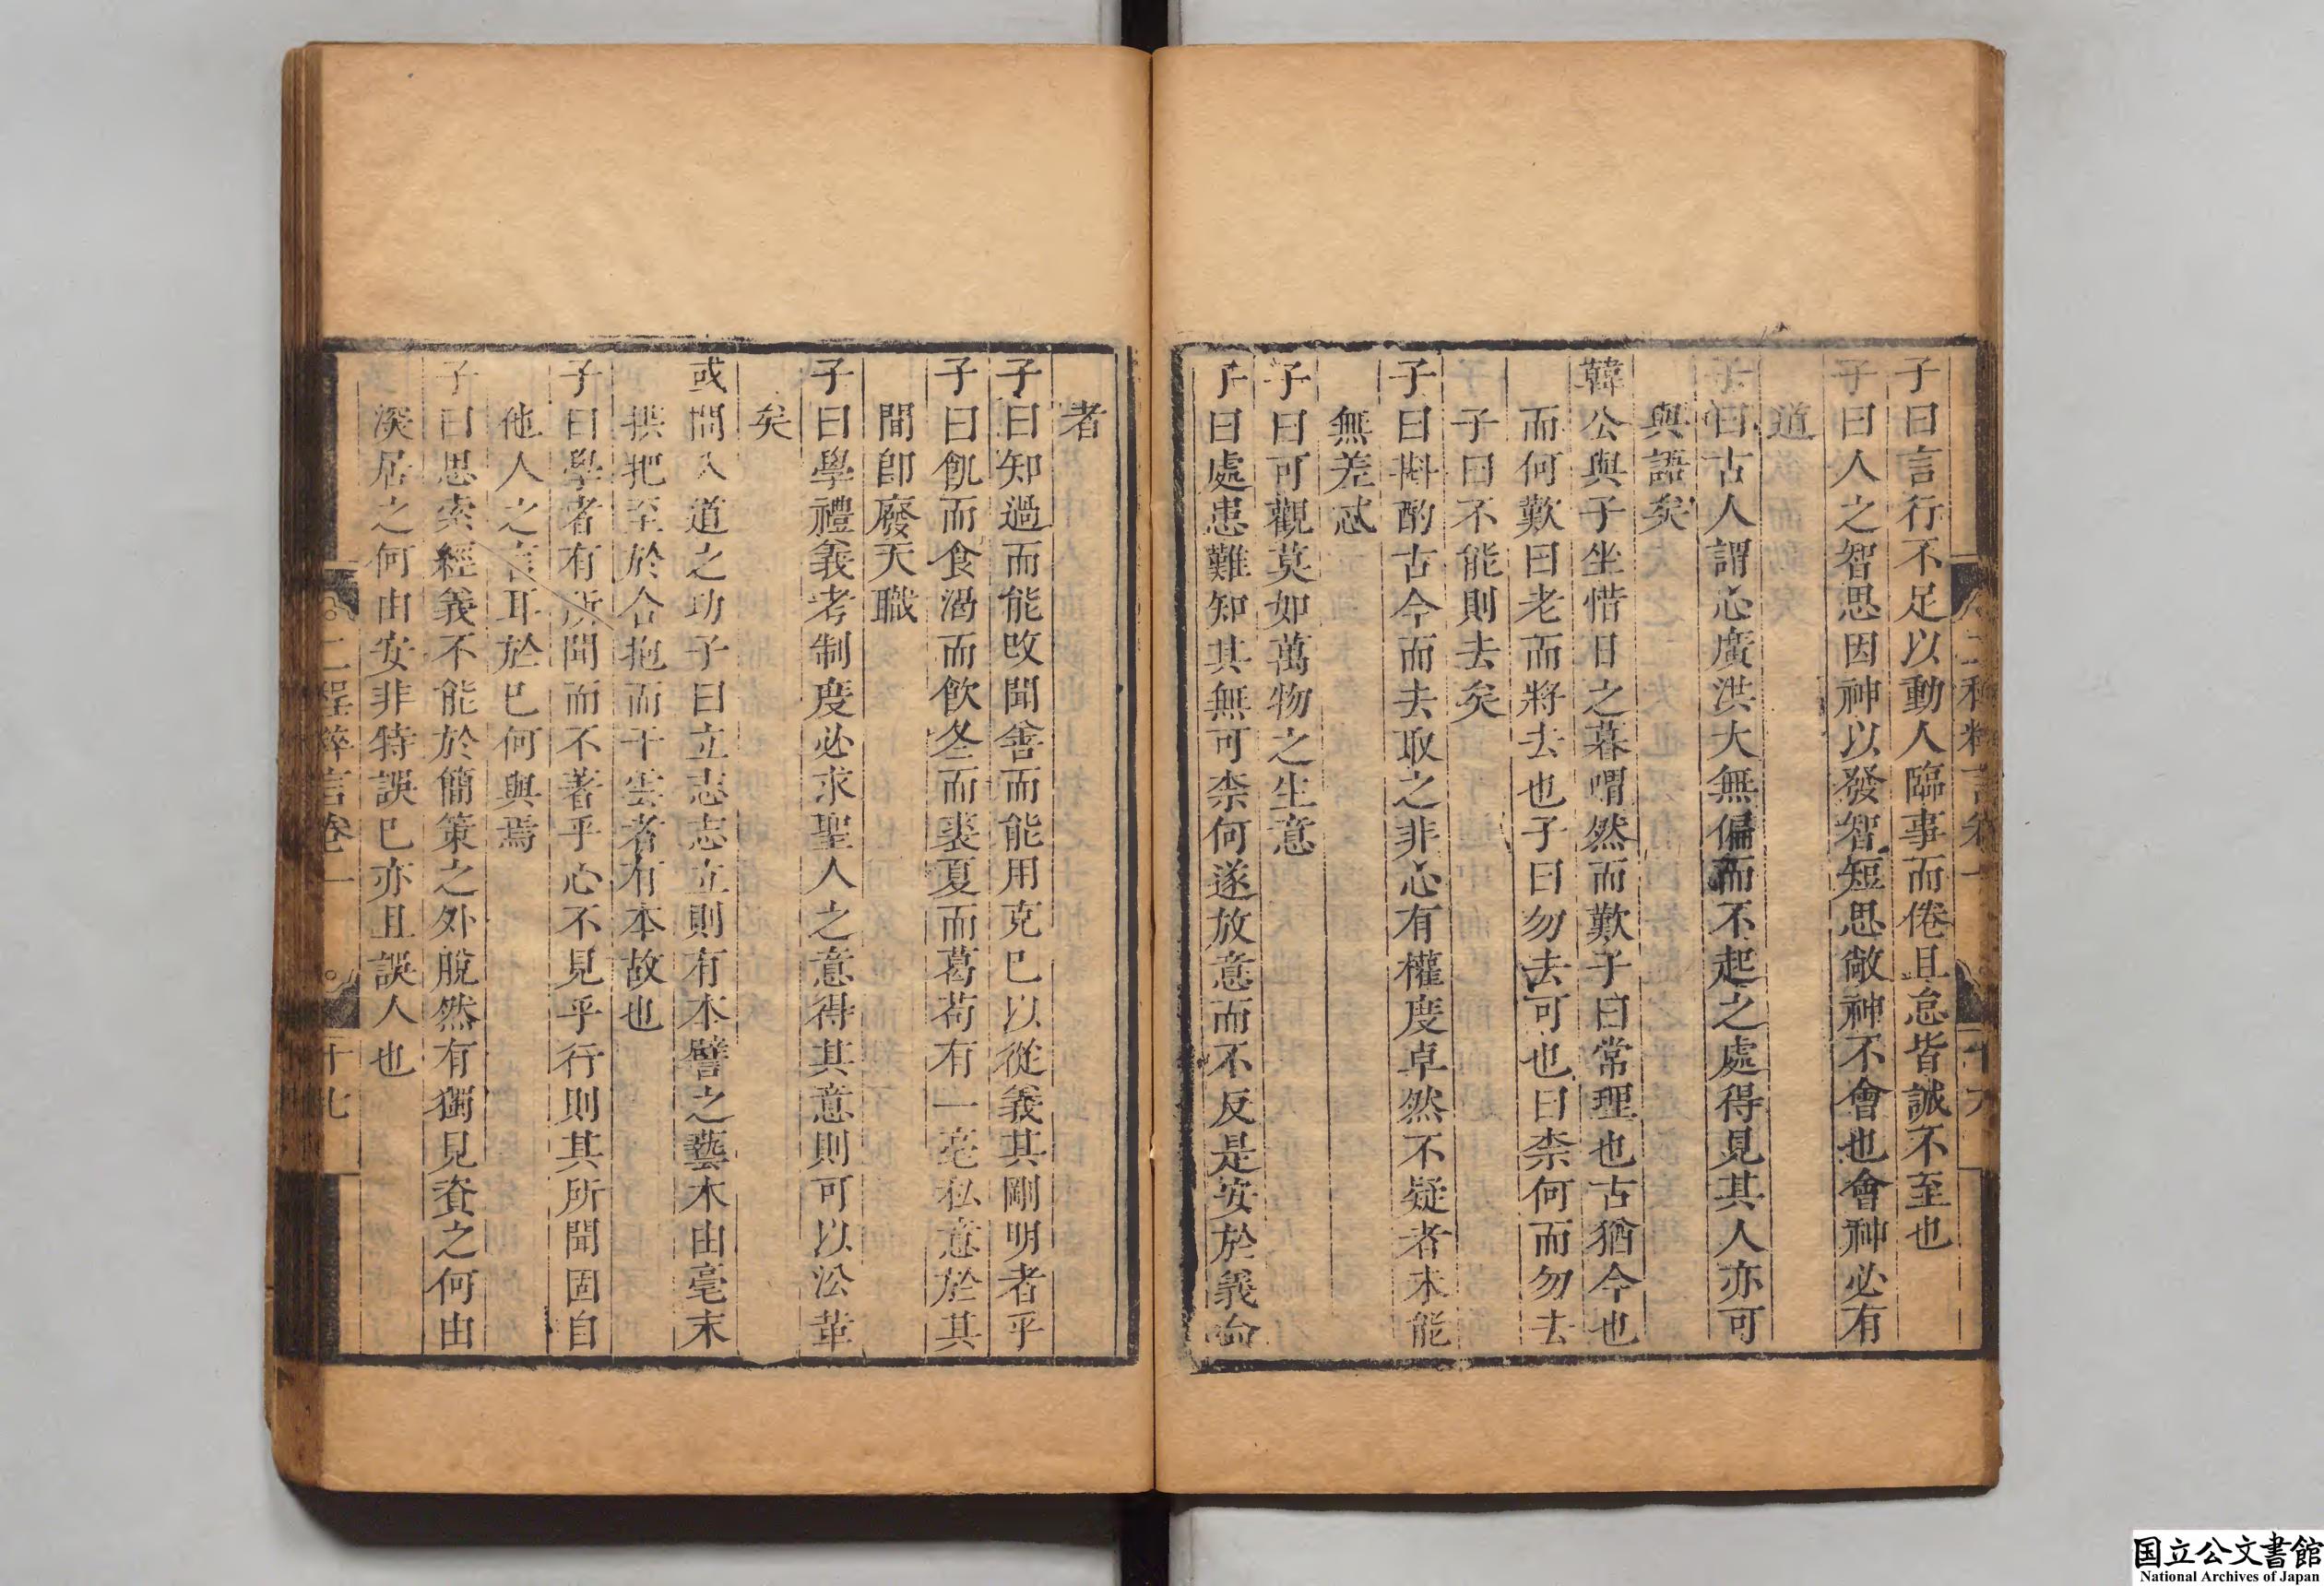 子曰言行不足以動人臨事而倦且怠皆誠不至也
子曰人之智思因神以發智短思敝神不會也會神必有
道
子曰古人謂心廣洪大無偏而不起之處得見其人亦可
與語矣
韓公與子坐惜日之暮喟然而歎子曰常理也古猶今也
而何歎曰老而將去也子曰勿去可也曰柰何而勿去
子曰不能則去矣
子曰斟酌古今而去取之非心有權度卓然不疑者未能
無差忒
子曰可觀莫如萬物之生意
子曰處患難知其無可柰何遂放意而不反是安於義命
者
子曰知過而能改聞善而能用克己以從義其剛明者乎
子曰飢而食渴而飲冬而裘夏而葛苟有一毫私意於其
間即廢天職
子曰學禮義考制度必求聖人之意得其意則可以沿革
矣
或問入道之功子曰立志志立則有本譬之藝木由毫末
拱把至於合抱而干雲者有本故也
子曰學者有所聞而不著乎心不見乎行則其所聞固自
他人之言耳於己何與焉
子曰思索經義不能於簡策之外脫然有獨見資之何由
深居之何由安非特誤己亦且誤人也
二程粹言卷一
十七
国立公文書館
National Archives of Japan